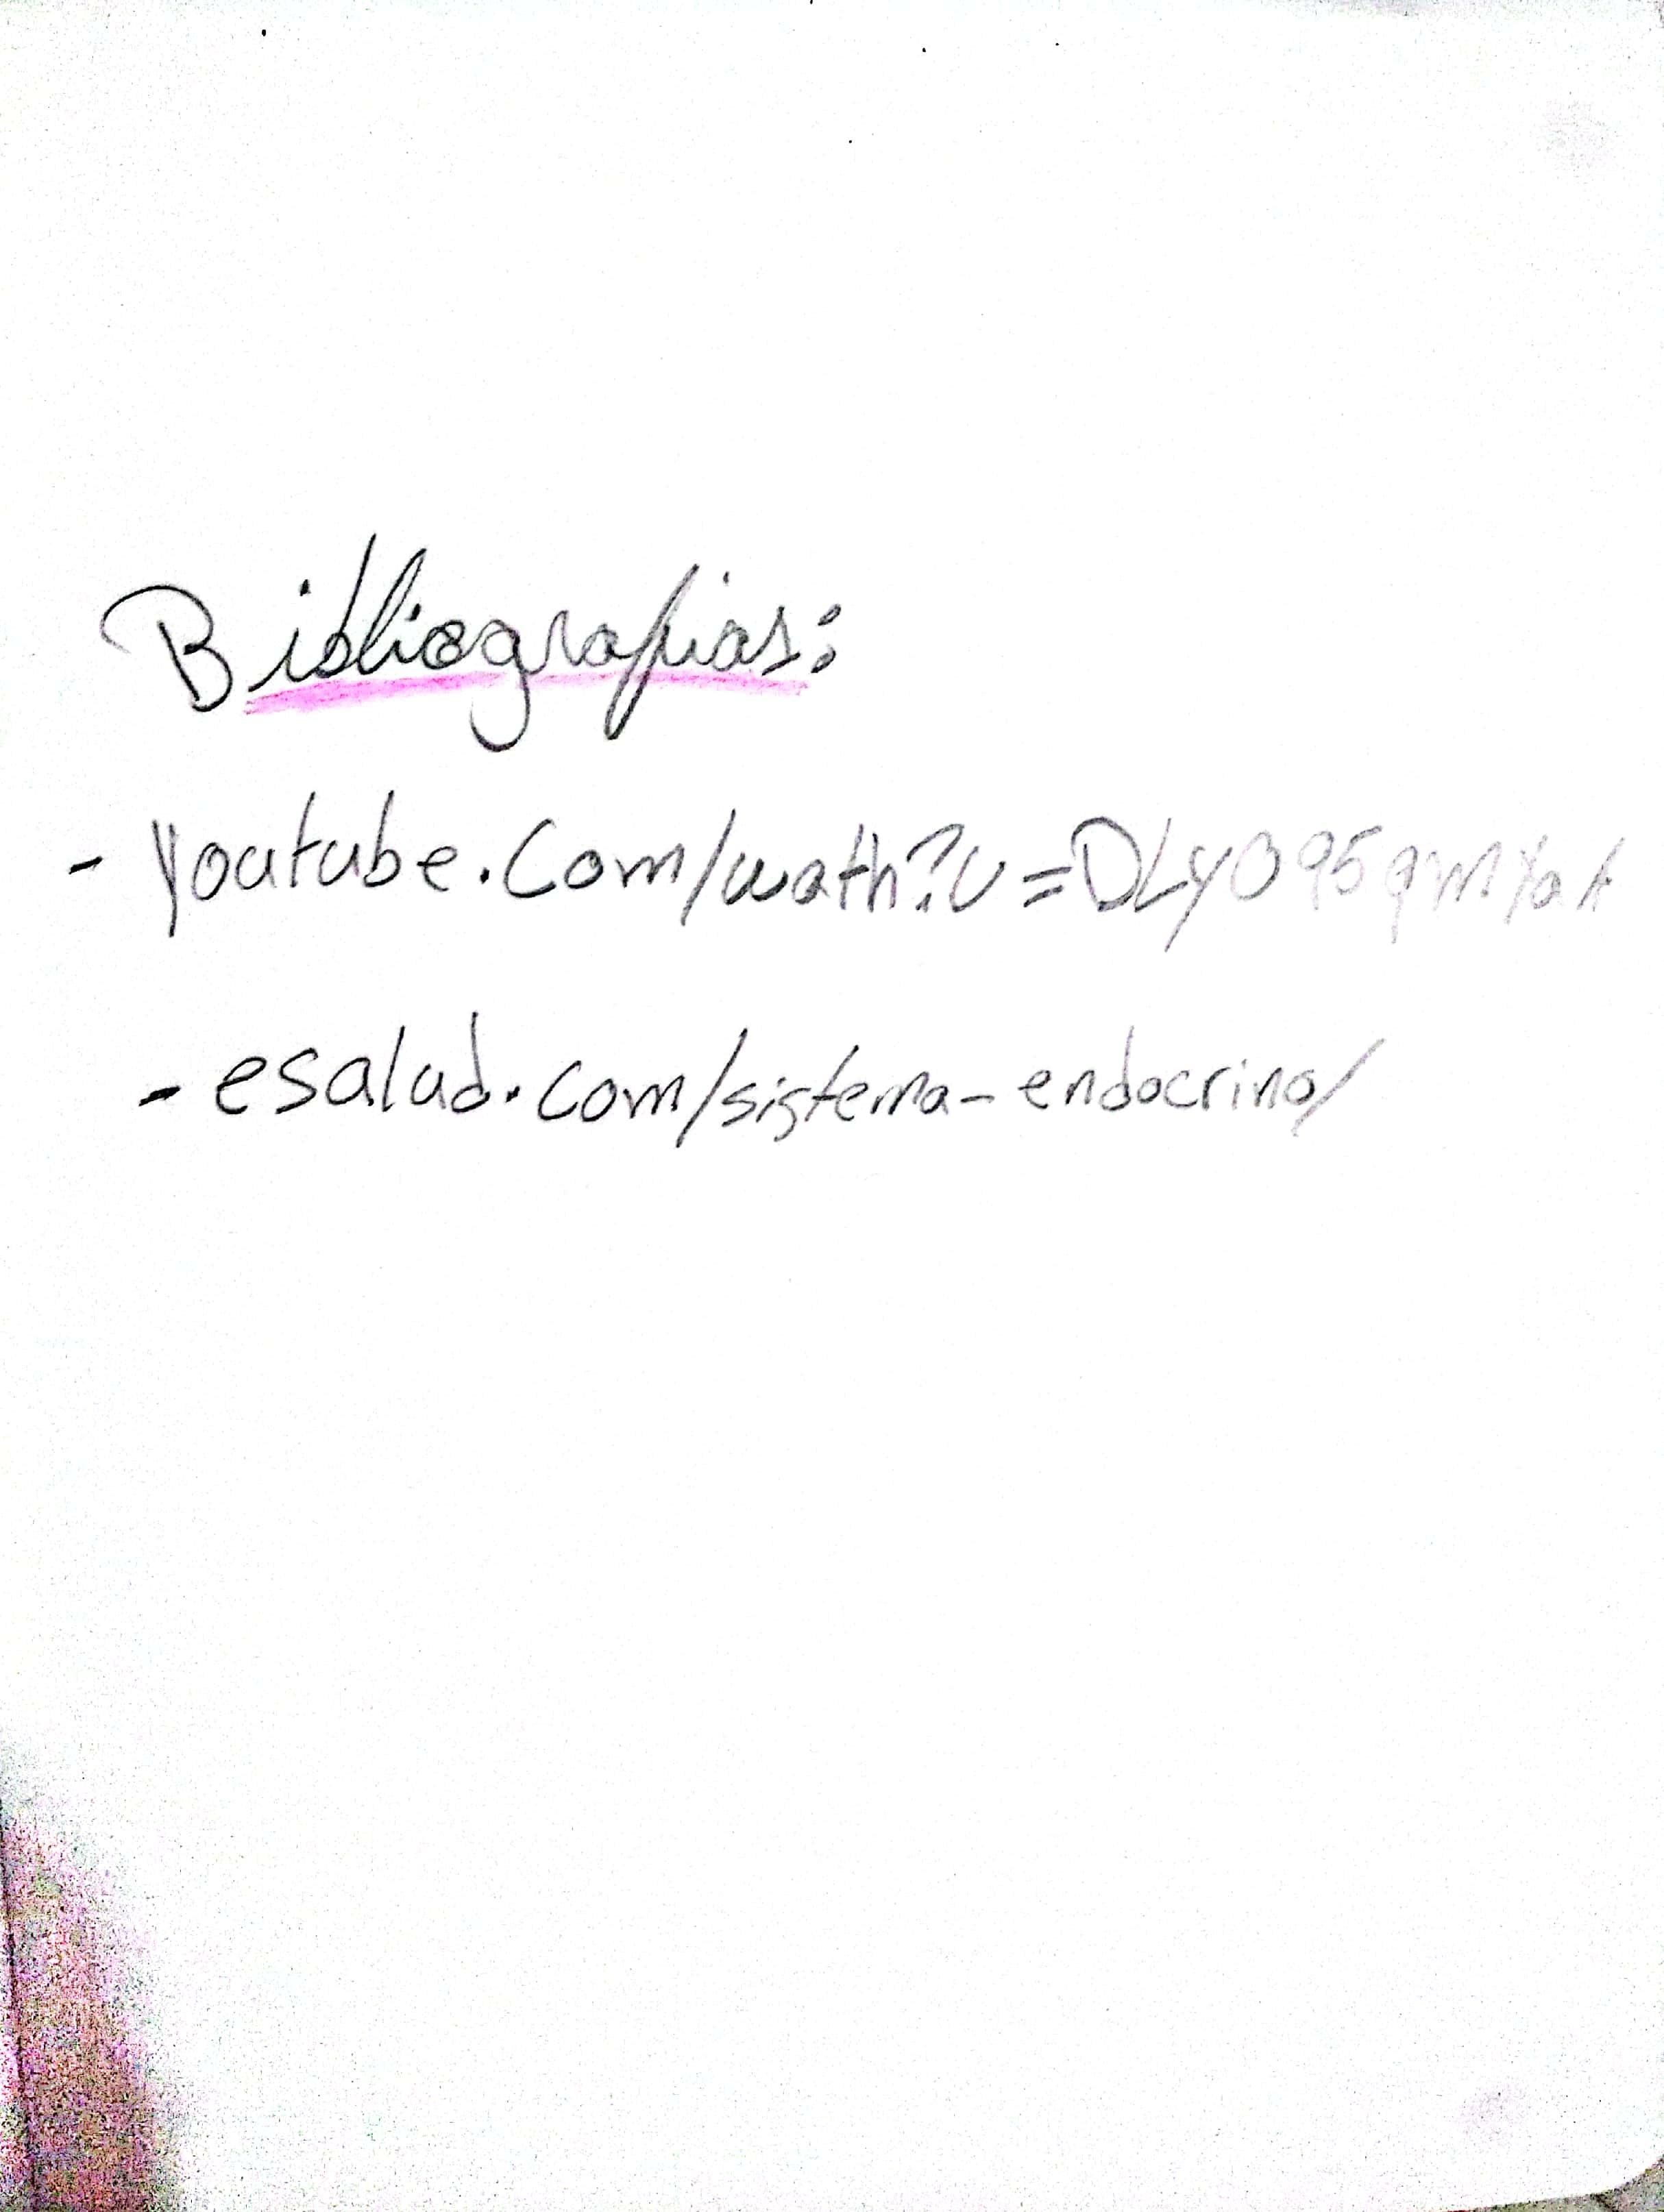 Bibliografias:
- Youtube.com/wath?v=DLyO95qmYaA
- esalud.com/sistema-endocrino/